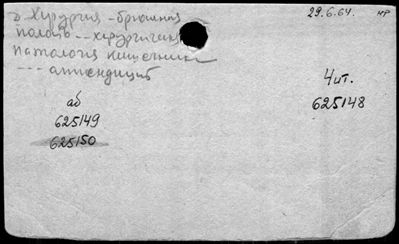 Хирургия - брюшная
29.6.64.
полость -- хирургическ
патология кишечника
--- аппендицит
Чит.
аб
625148
625149
625150